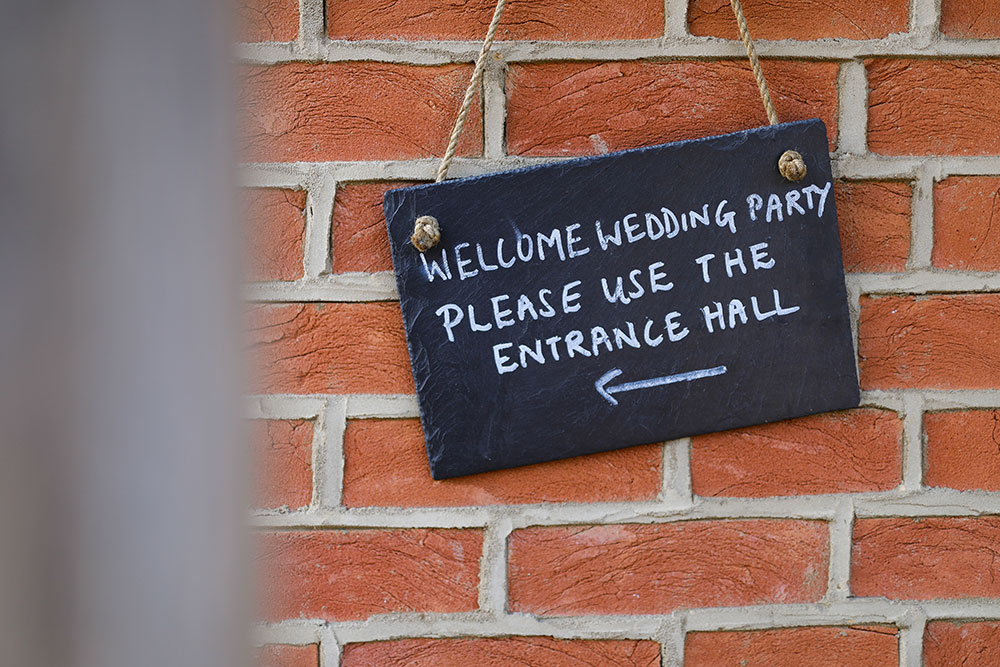 WELCOME WEDDING PARTY
PLEASE USE THE
ENTRANCE HALL